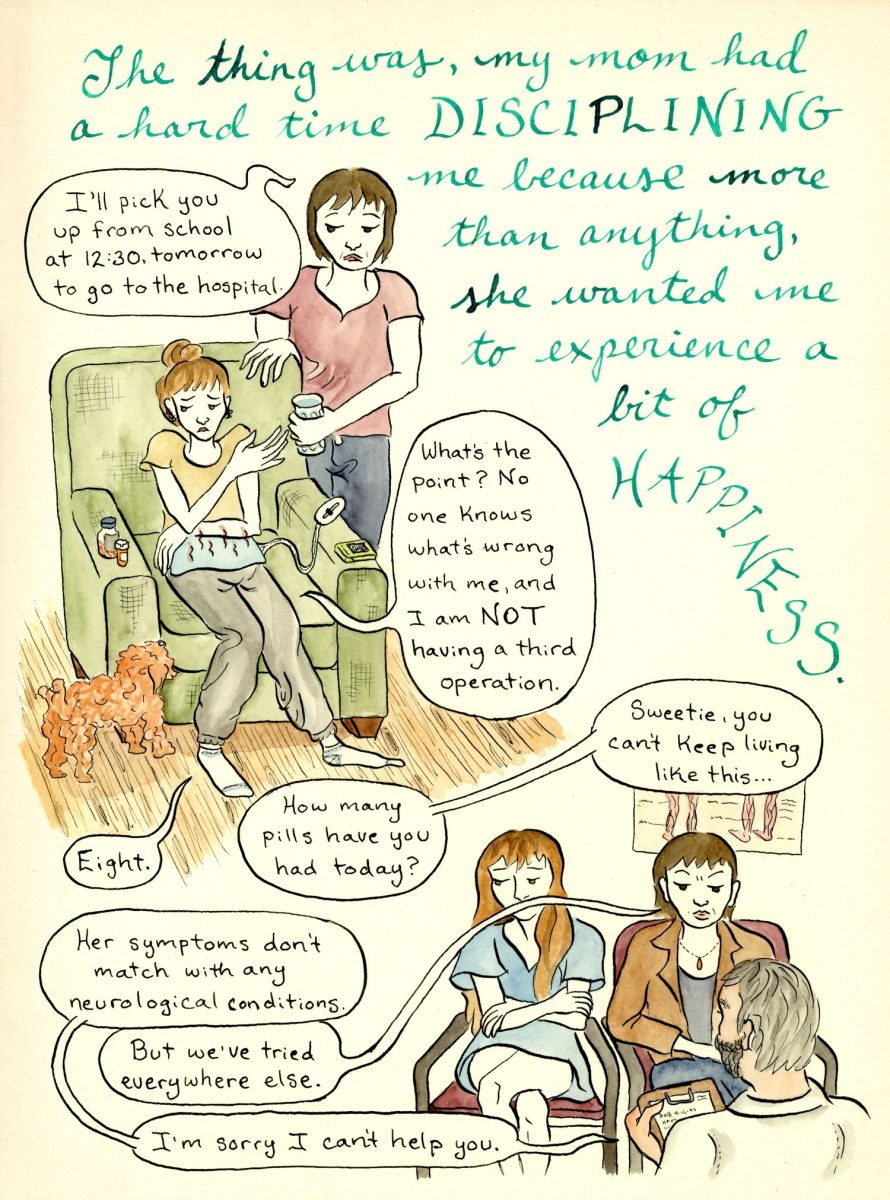 The thing was, my mom had
a hard time DISCIPLINING
me because more
than anything,
she wanted me
to experience a
bit of
HAPPINESS.
I'll pick you
up from school
at 12:30, tomorrow
to go to the hospital.
What's the
point? No
one knows
what's wrong
with me, and
I am NOT
having a third
operation.
Sweetie, you
can't keep living
like this...
How many
pills have you
had today?
Eight.
Her symptoms don't
match with any
neurological conditions.
But we've tried
everywhere else.
I'm sorry I can't help you.